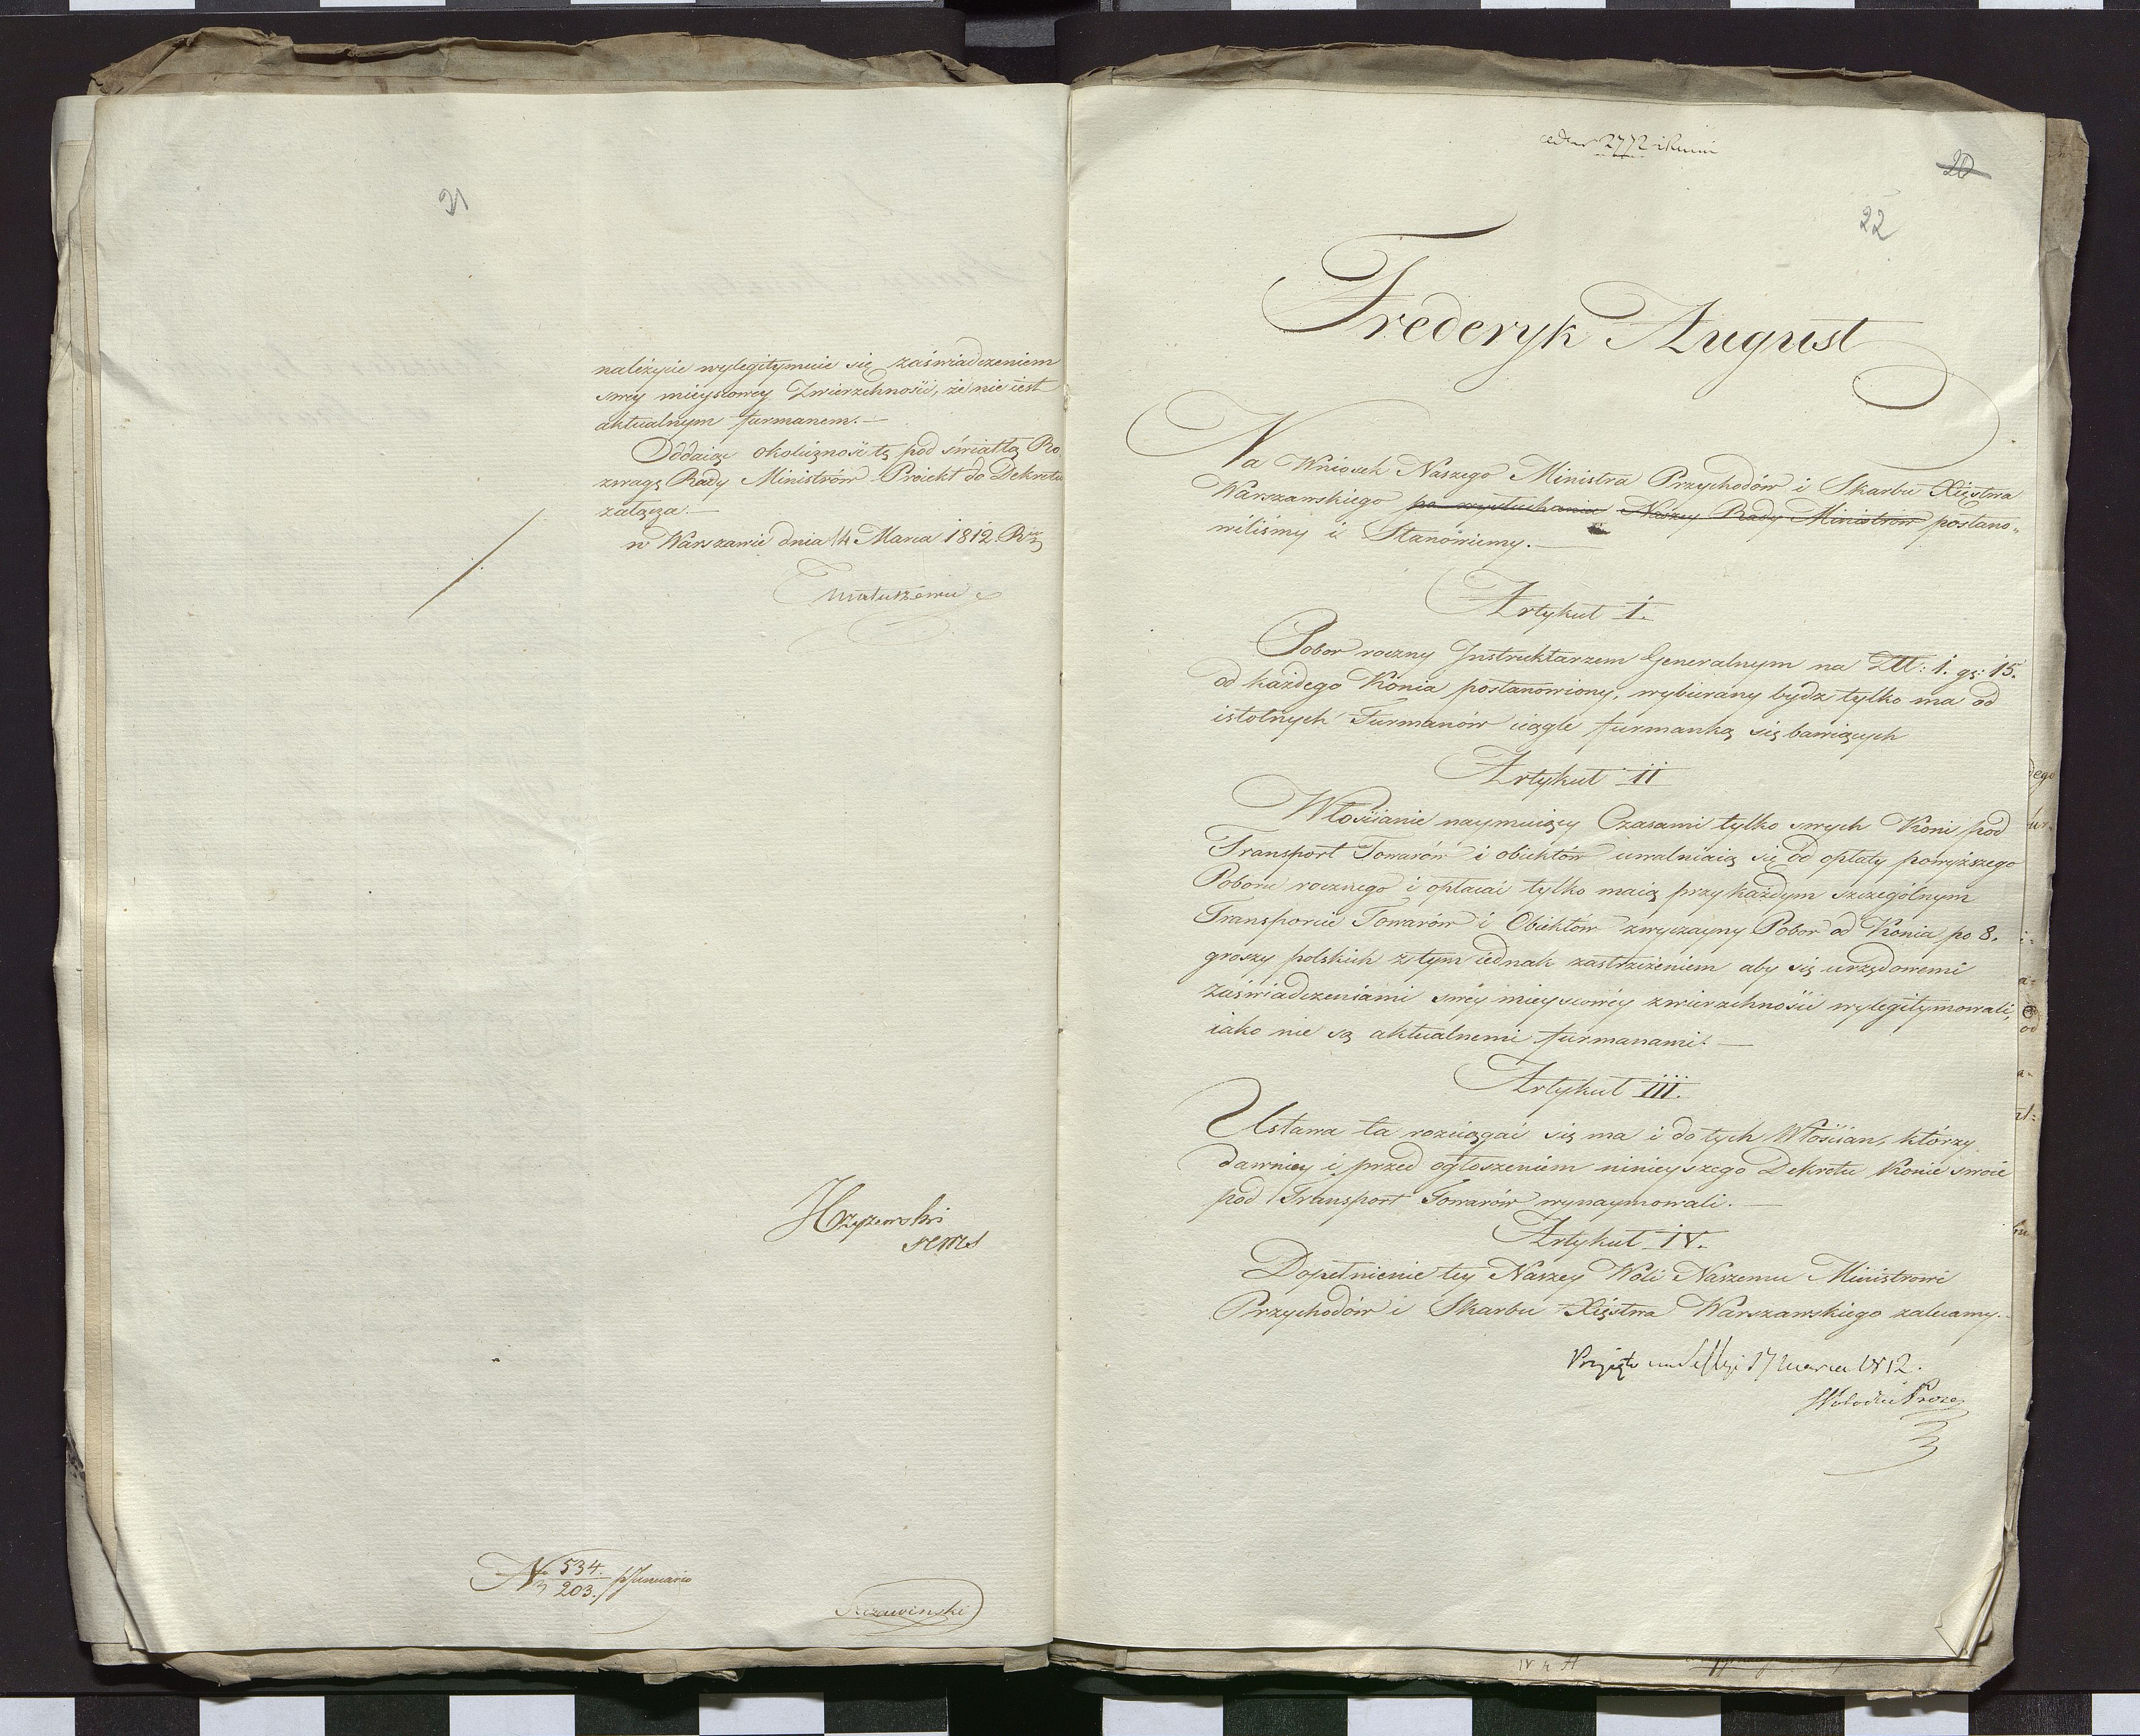 21
należycie wylegitymuie się zaświadczeniem
swey mieyscowey Zwierzchności, że nie iest
aktualnym furmanem.—
Oddaiąc okoliczność tę pod światłą Ro-
zwagę Rady Ministrów Proiekt do Dekretu
załącza.—
w Warszawie dnia 14 Marca 1812. Rku
Matuszewic
N 534./203./ p Januario
22
20
2772
Frederyk August
Na Wniosek Naszego Ministra Przychodów i Skarbu Xięstwa
Warszawskiego po wysłuchaniu Naszey Rady Ministrów postano-
wiliśmy i Stanowiemy.—
Artykuł I.
Pobor roczny Instruktarzem Generalnym na Złł: 1. gr: 15.
od każdego Konia postanowiony, wybierany bydz tylko ma od
istotnych Furmanów ciągle furmanką się bawiących
Artykuł II
Włościanie naymuiący Czasami tylko swych Koni pod
Transport Towarów i obiektów uwalniaią się od opłaty powyższego
Poboru rocznego i opłacać tylko maią przy każdym szczególnym
Transporcie Towarów i Obiektów zwyczayny Pobor od Konia po 8.
groszy polskich z tym iednak zastrzeżeniem aby się urzędowemi
zaświadczeniami swéy mieyscowéy zwierzchności wylegitymowali,
iako nie są aktualnemi furmanami.—
Artykuł III.
Ustawa ta rozciągać się ma i do tych Włościan, którzy
dawniey i przed ogłoszeniem ninieyszego Dekretu Konie swoie
pod Transport Towarów wynaymowali.—
Artykuł IV.
Dopełnienie tey Naszey Woli Naszemu Ministrowi
Przychodów i Skarbu Xięstwa Warszawskiego zalecamy.
Przyięto na Sessyi 17 Marca 1812.